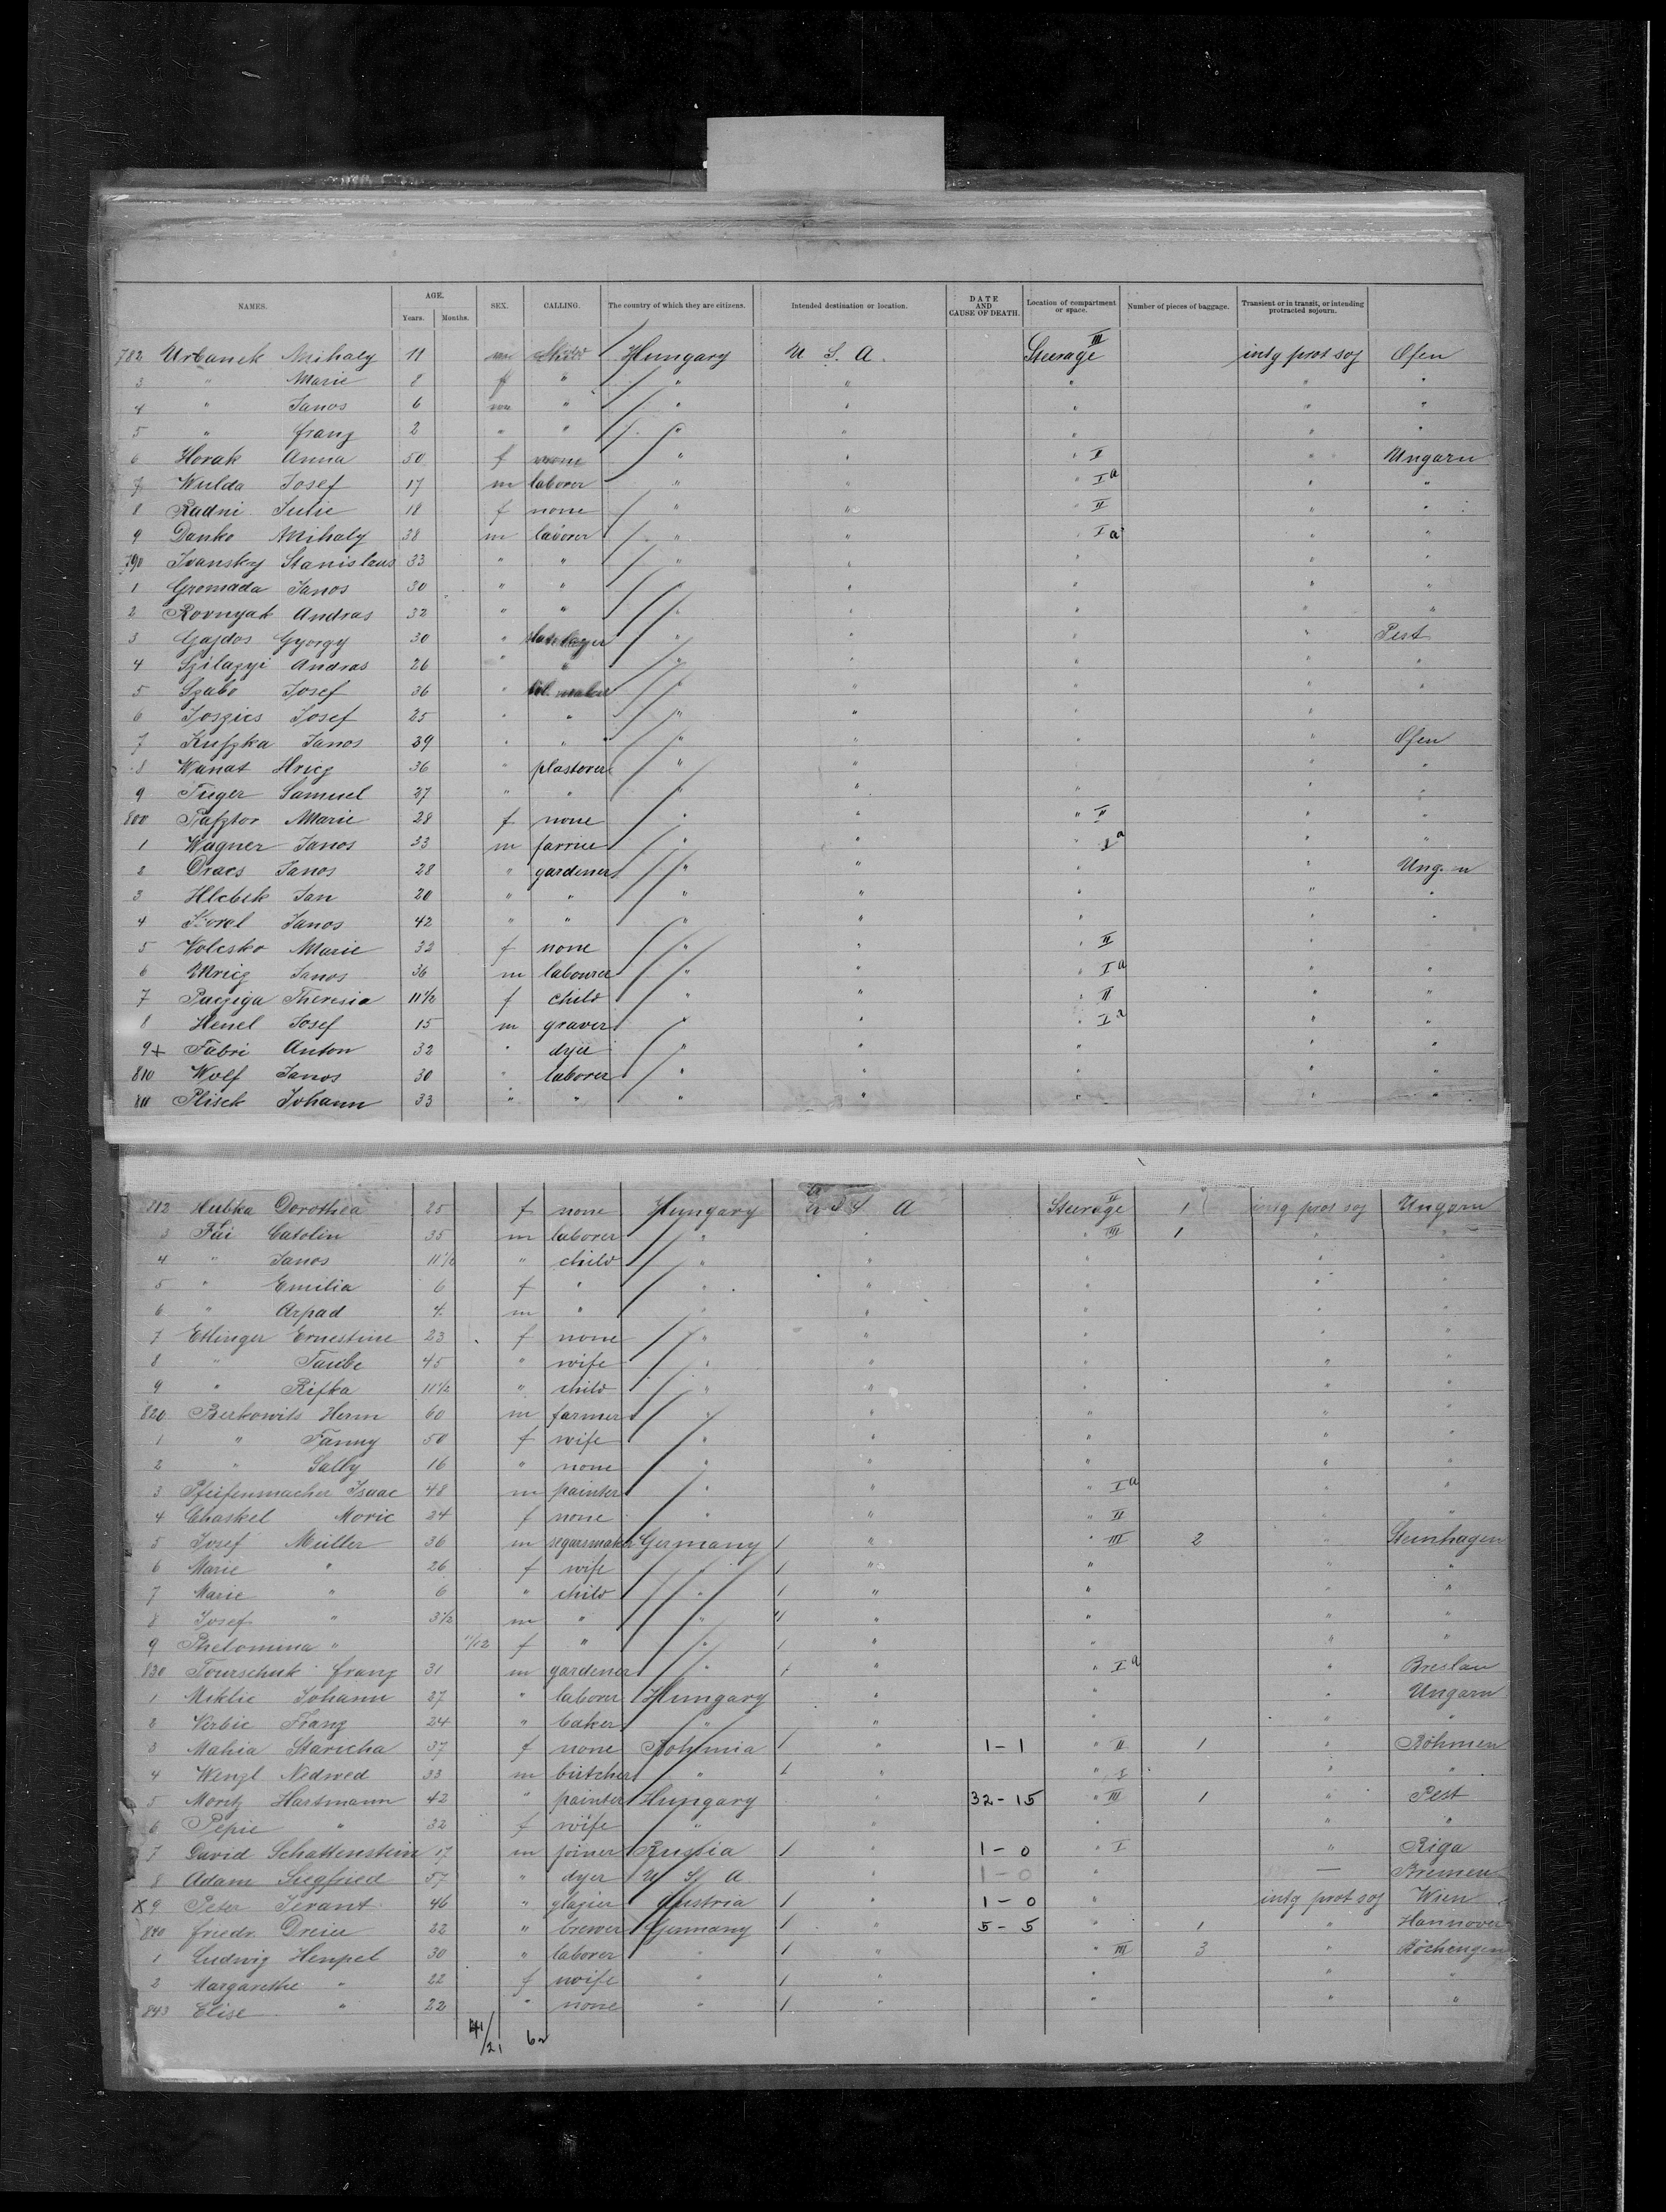 NAMES. AGE. SEX. CALLING. The country of which they are citizens. Intended destination or location. DATE AND CAUSE OF DEATH. Location of compartment or space. Number of pieces of baggage. Transient or in transit, or intending protracted sojourn.
Years. Months.
782 Urbanek Mihaly 11 m child Hungary U. S. A. Steerage III intg prot soj Ofen
3 " Marie 8 f " " " " " "
4 " Janos 6 m " " " " " "
5 " Franz 2 " " " " " " "
6 Horak Anna 50 f none " " " II " Ungarn
7 Wulda Josef 17 m laborer " " " Ia " "
8 Radni Julie 18 f none " " " II " "
9 Danko Mihaly 38 m laborer " " " Ia " "
790 Ivansky Stanislaus 33 " " " " " " "
1 Gromada Janos 30 " " " " " " "
2 Rovnyak Andras 32 " " " " " " "
3 Gajdos Gyorgy 30 " " " " " Pest
4 Szilagyi Andras 26 " " " " " " "
5 Szabo Josef 36 " " " " " "
6 Joszics Josef 25 " " " " " "
7 Kufzka Janos 39 " " " " " Ofen
8 Wanat Hricz 36 " plasterer " " " "
9 Tuger Samuel 37 " " " " " " "
800 Pafztor Marie 28 f none " " " II " "
1 Wagner Janos 33 m farrier " " " Ia " "
2 Dracs Janos 28 " gardener " " " " Ungarn
3 Hlebik Jan 20 " " " " " " "
4 Korel Janos 42 " " " " " " "
5 Volesko Marie 32 f none " " " II "
6 Uhricz Janos 36 m labourer " " " Ia " "
7 Pacziga Theresia 11½ f child " " " II " "
8 Henel Josef 15 m graver " " " Ia " "
9+ Fabri Anton 32 " dyer " " " " "
810 Wolf Janos 30 " laborer " " " " "
811 Plisek Johann 33 " " " " " " "
812 Hubka Dorothea 25 f none Hungary U S A Steerage II 1 intg prot soj Ungarn
3 Fäi Catolin 35 m laborer " " " III 1 " "
4 " Janos 11½ " child " " " " "
5 " Emilia 6 f " " " " " "
6 " Arpad 4 m " " " " " "
7 Etlinger Ernestine 23 f none " " " " "
8 " Taube 45 " wife " " " " "
9 " Rifka 11½ " child " " " " "
820 Berkowits Herm 60 m farmer " " " " "
1 " Fanny 50 f wife " " " " "
2 " Sally 16 " none " " " " "
3 Pfeifenmacher Isaac 48 m painter " " " Ia " "
4 Chaskel Moric 24 f none " " " II " "
5 Josef Müller 36 m segarsmaker Germany 1 " " III 2 " Steinhagen
6 Marie " 26 f wife " 1 " " " "
7 Marie " 6 " child " 1 " " " "
8 Josef " 3½ m " " 1 " " " "
9 Phelomina " 11/12 f " " 1 " " " "
830 Tourschuk Franz 31 m gardener " 1 " " Ia " Breslau
1 Miklic Johann 27 " laborer Hungary " " " Ungarn
2 Verbic Franz 24 " baker " " " " "
3 Mahia Staricha 37 f none Bohemia 1 " 1-1 " II 1 " Böhmen
4 Wenzl Nedwed 33 m butcher " 1 " " I " "
5 Moritz Hartmann 42 " painter Hungary " 32-15 " III 1 " Pest
6 Pepie " 32 f wife " " " " "
7 David Schattenstein 17 m joiner Russia 1 " 1-0 " I " Riga
8 Adam Siegfried 57 " dyer U S A " 1-0 " — Bremen
x9 Peter Jerant 46 " glazier Austria 1 " 1-0 " intg prot soj Wien
840 Friedr. Dreier 22 " brewer Germany 1 " 5-5 " 1 " Hannover
1 Ludwig Hempel 30 " laborer " 1 " " III 3 " Böchingen
2 Margarethe " 22 f wife " 1 " " " "
843 Elise " 22 " none " 1 " " " "
41/21